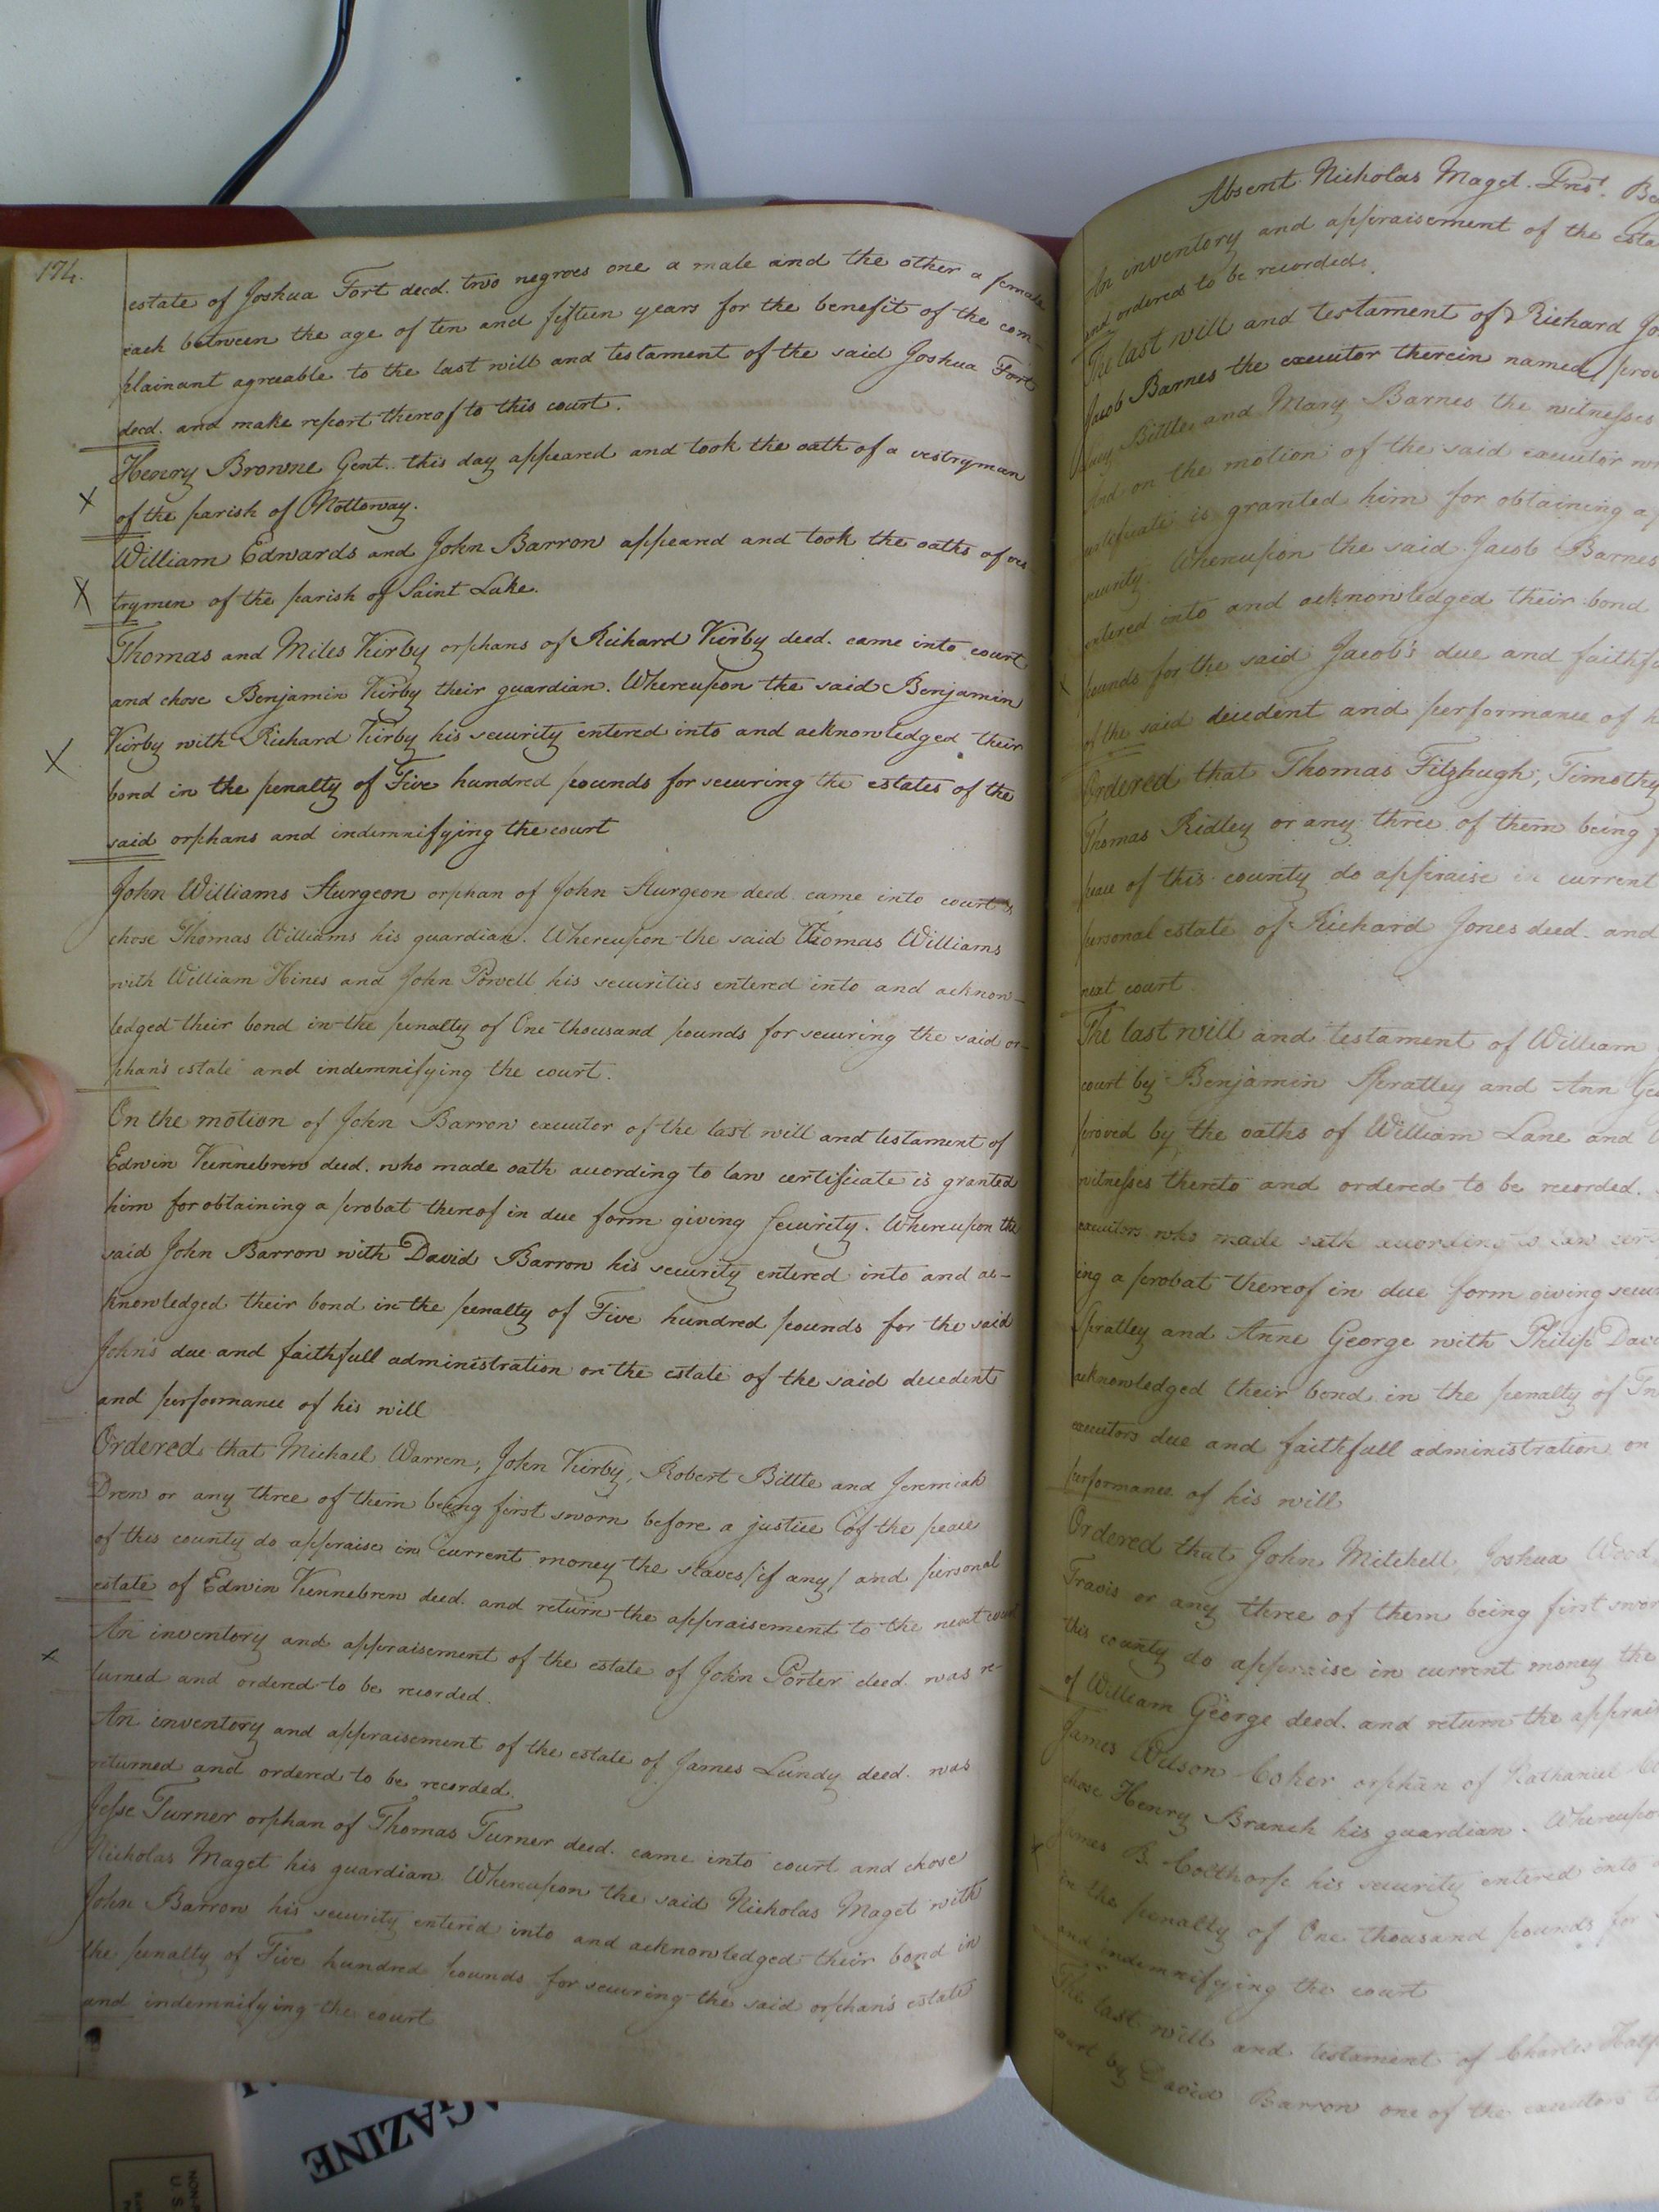 174.
estate of Joshua Fort decd. two negroes one a male and the other a female
each between the age of ten and fifteen years for the benefit of the com-
plainant agreeable to the last will and testament of the said Joshua Fort
decd. and make report thereof to this court.
Henry Browne Gent. this day appeared and took the oath of a vestryman
of the parish of Nottoway.
William Edwards and John Barrow appeared and took the oaths of ves
trymen of the parish of Saint Luke.
Thomas and Miles Kirby orphans of Richard Kirby decd. came into court
and chose Benjamin Kirby their guardian. Whereupon the said Benjamin
Kirby with Richard Kirby his security entered into and acknowledged their
bond in the penalty of Five hundred pounds for securing the estates of the
said orphans and indemnifying the court
John Williams Sturgeon orphan of John Sturgeon decd. came into court &
chose Thomas Williams his guardian. Whereupon the said Thomas Williams
with William Hines and John Powell his securities entered into and acknow-
ledged their bond in the penalty of One thousand pounds for securing the said or-
phan's estate and indemnifying the court.
On the motion of John Barrow executor of the last will and testament of
Edwin Kinnebrew decd. who made oath according to law certificate is granted
him for obtaining a probat thereof in due form giving security. Whereupon the
said John Barrow with David Barrow his security entered into and ac-
knowledged their bond in the penalty of Five hundred pounds for the said
John's due and faithfull administration on the estate of the said decedent
and performance of his will
Ordered that Michael Warren, John Kirby, Robert Bittle and Jeremiah
Drew or any three of them being first sworn before a justice of the peace
of this county do appraise in current money the slaves /if any/ and personal
estate of Edwin Kinnebrew decd. and return the appraisement to the next court
An inventory and appraisement of the estate of John Porter decd. was re-
turned and ordered to be recorded.
An inventory and appraisement of the estate of James Lundy decd. was
returned and ordered to be recorded.
Jesse Turner orphan of Thomas Turner decd. came into court and chose
Nicholas Maget his guardian. Whereupon the said Nicholas Maget with
John Barrow his security entered into and acknowledged their bond in
the penalty of Five hundred pounds for securing the said orphan's estate
and indemnifying the court
Absent Nicholas Maget. Prest. Be
An inventory and appraisement of the esta
and ordered to be recorded.
The last will and testament of Richard Jo
Jacob Barnes the executor therein named prov
Bittle and Mary Barnes the witnesses
And on the motion of the said executor
certificate is granted him for obtaining a
security. Whereupon the said Jacob Barnes
entered into and acknowledged their bond
pounds for the said Jacob's due and faithfu
of the said decedent and performance of h
Ordered that Thomas Fitzhugh, Timothy
Thomas Ridley or any three of them being f
peace of this county do appraise in current
personal estate of Richard Jones decd. and
next court.
The last will and testament of William
court by Benjamin Spratley and Ann Geo
proved by the oaths of William Lane and
witnesses thereto and ordered to be recorded.
executors who made oath according to law cer
ing a probat thereof in due form giving secu
Spratley and Anne George with Philip Davi
acknowledged their bond in the penalty of
executors due and faithfull administration on
performance of his will
Ordered that John Mitchell, Joshua Wood
Travis or any three of them being first swor
this county do appraise in current money the
of William George decd. and return the apprais
James Wilson Coker orphan of Nathaniel Co
chose Henry Branch his guardian. Whereupo
James B. Colthorp his security entered into a
in the penalty of One thousand pounds for
and indemnifying the court
The last will and testament of Charles
court by David Barrow one of the executors
AGAZINE